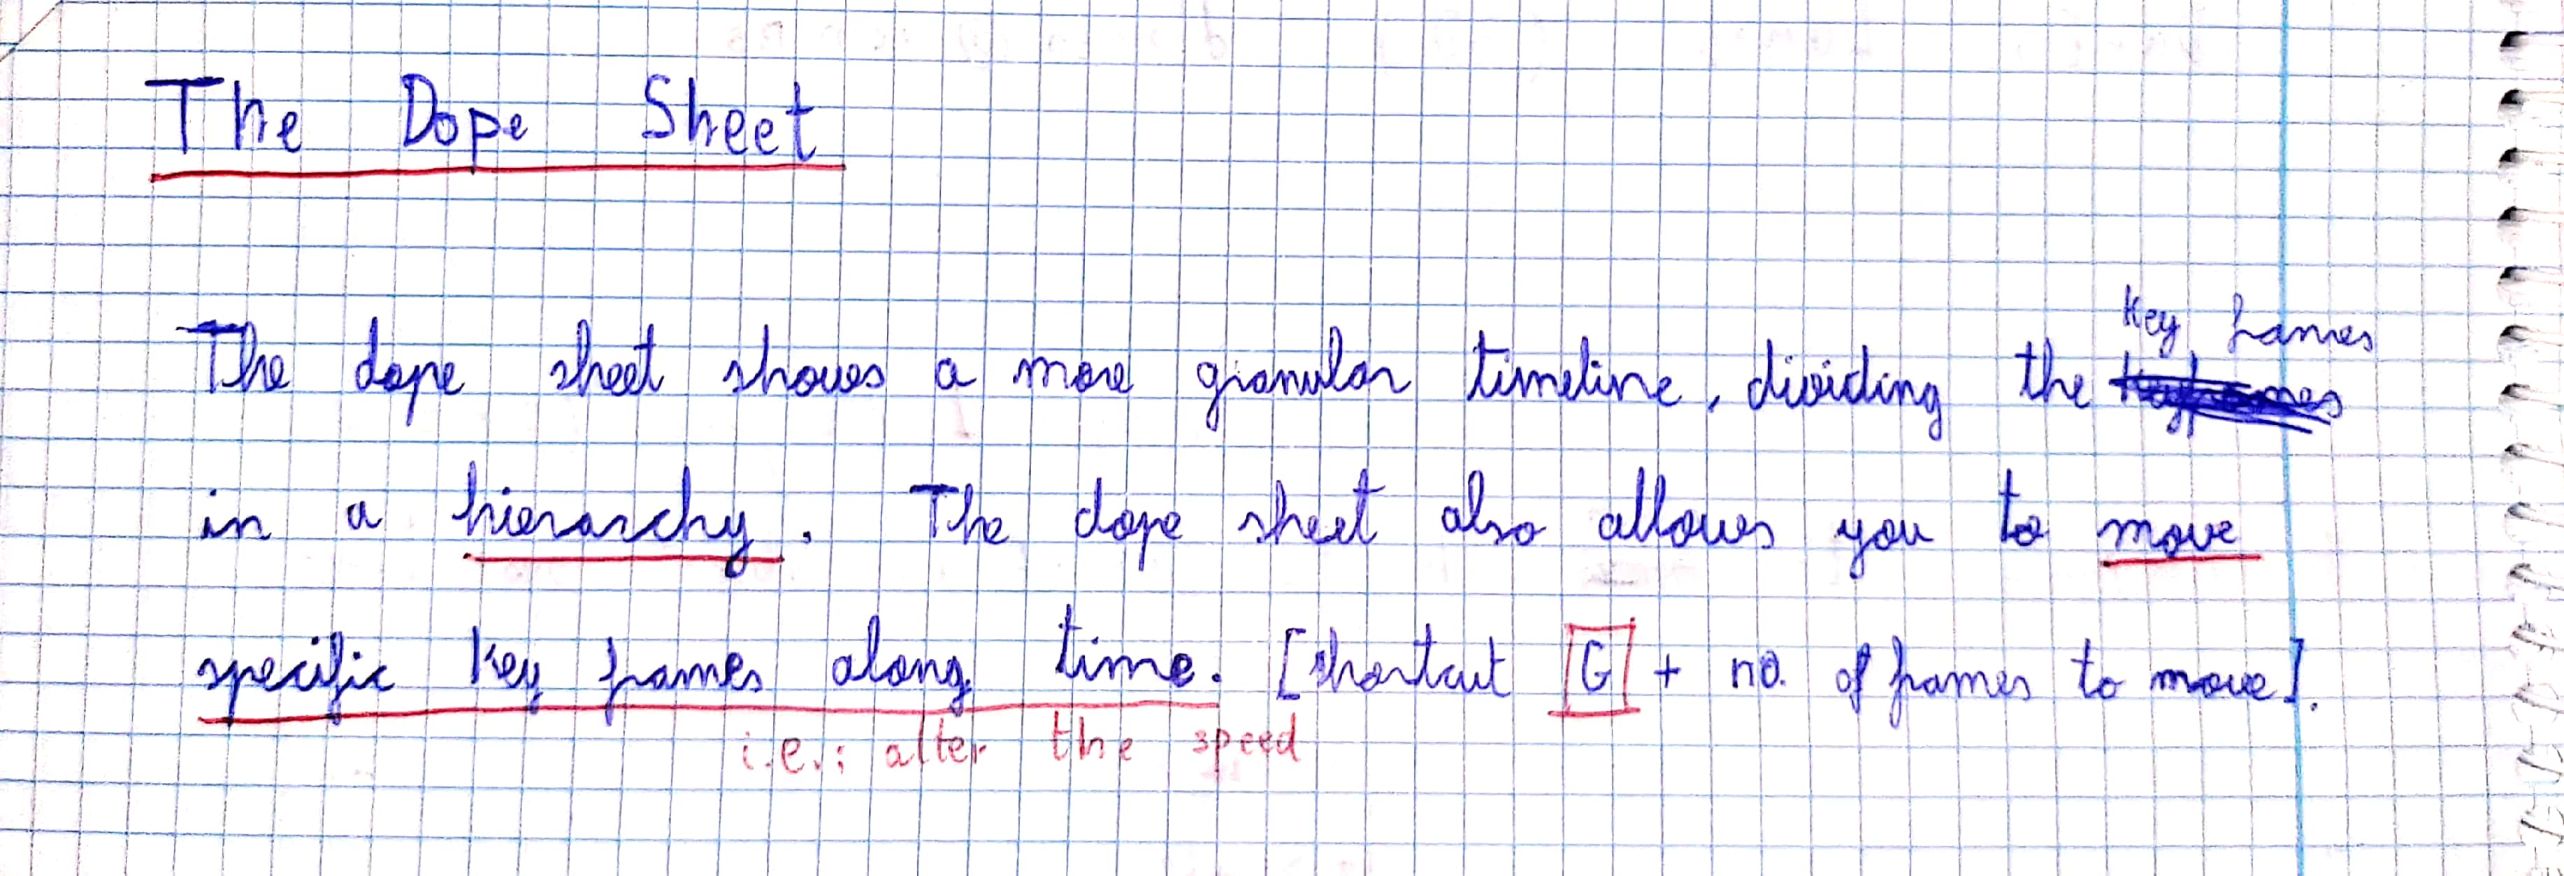 The Dope Sheet
Key frames
The dope sheet shows a more granular timeline, dividing the
in a hierarchy. The dope sheet also allows you to move
specific key frames along time. [shortcut G + no. of frames to move].
i.e.: alter the speed